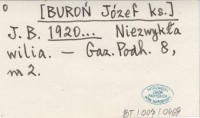 0
[BUROŃ Józef ks.]
J. B. 1920... Niezwykła
wilia. — Gaz. Podh. 8,
nr 2.
BT/009/0469